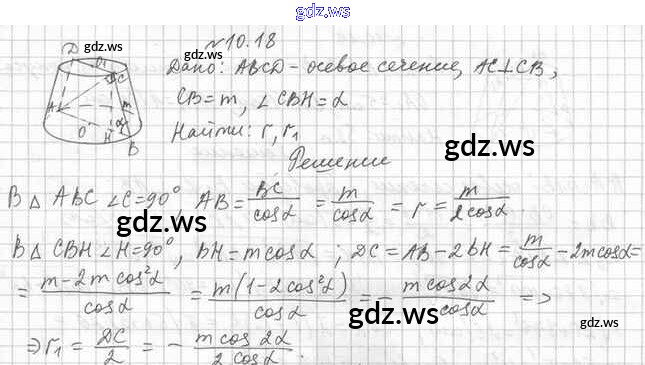 gdz.ws
№10.18
gdz.ws
Дано: ABCD - осевое сечение, AC⊥CB,
CB=m, ∠CBH=α
Найти: r, r₁
gdz.ws
Решение
D O₁ C A m O H α B
В △ ABC ∠C=90°, AB = BC/cosα = m/cosα = r = m/2cosα
gdz.ws
В △ CBH ∠H=90°, BH = m cosα ; DC = AB - 2BH = m/cosα - 2m cosα =
= m - 2m cos²α/cosα = m(1 - 2cos²α)/cosα = - m cos2α/cosα =>
gdz.ws
gdz.ws
⇒ r₁ = DC/2 = - m cos 2α/2 cosα.